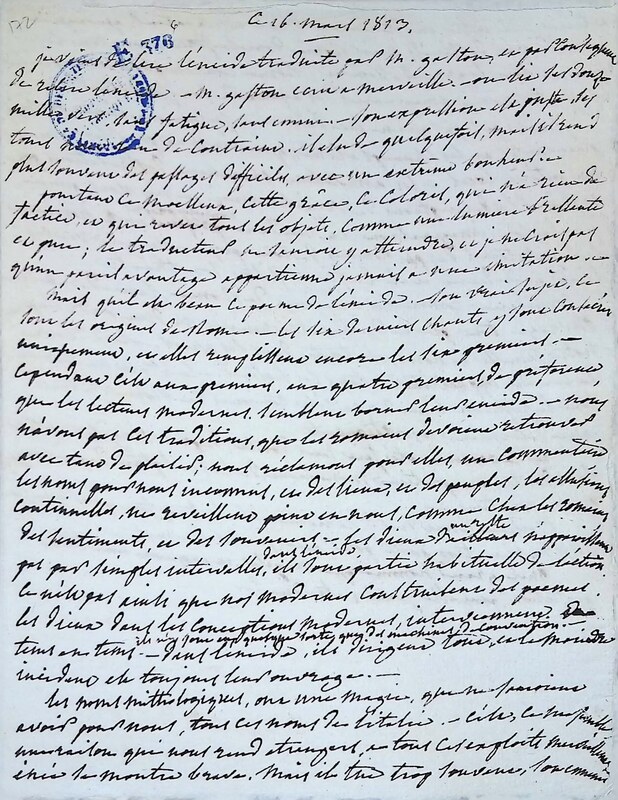 Ce 16. mars 1813.
E 376
je viens de lire l'énéide traduite par m. gaston, et par conséquent
de relire l'énéide - m. gaston a merveille. - on lit ses douze
mille vers sans fatigue, - son expression est juste, ses
tours de contrainte. il elude quelquefois, mais il rend
plus souvent des passages difficiles, avec un extrême bonheur. -
pourtant ce moelleux, cette grâce, ce coloris, qui n'a rien de
factice, et qui revet tous les objets, comme une lumière brillante
et pure; le traducteur ne sauroit y atteindre, et je ne crois pas
qu'un pareil avantage appartienne jamais a une imitation. -
mais qu'il est beau ce poeme de l'énéide. - son vrai sujet, ce
sont les origines de Rome - les six derniers chants, y sont consacrés
uniquement, et elles remplissent encore les six premiers. -
cependant c'est aux premiers, aux quatre premiers de préférence
que les lecteurs modernes semblent borner leur énéide. - nous
n'avons pas ces traditions, que les romains devoient retrouver
avec tant de plaisir; nous réclamons pour elles, un commentaire
les noms pour nous inconnus, et des lieux, et des peuples, les allusions
continuelles, ne reveillent point en nous, comme chez les romains
des sentiments, et des souvenirs. - les dieux n'apparoissent
dans l'énéide
pas par simples intervalles, ils sont partie habituelle de l'action
ce n'est pas ainsi que nos modernes construisent des poemes.
les dieux dans les conceptions modernes, interviennent de
ils n'y sont en quelque sorte, que des machines de convention. -
tems en tems - dans l'énéide, ils dirigent tout, et le moindre
incident est toujours leur ouvrage. -
les noms mithologiques, ont une magie, que ne sauroient
avoir pour nous, tous ces noms de l'italie. - c'est
une raison qui nous rend etrangers, a tous ces exploits merveilleux
énée se montre brave. mais il tue trop souvent, son ennemi